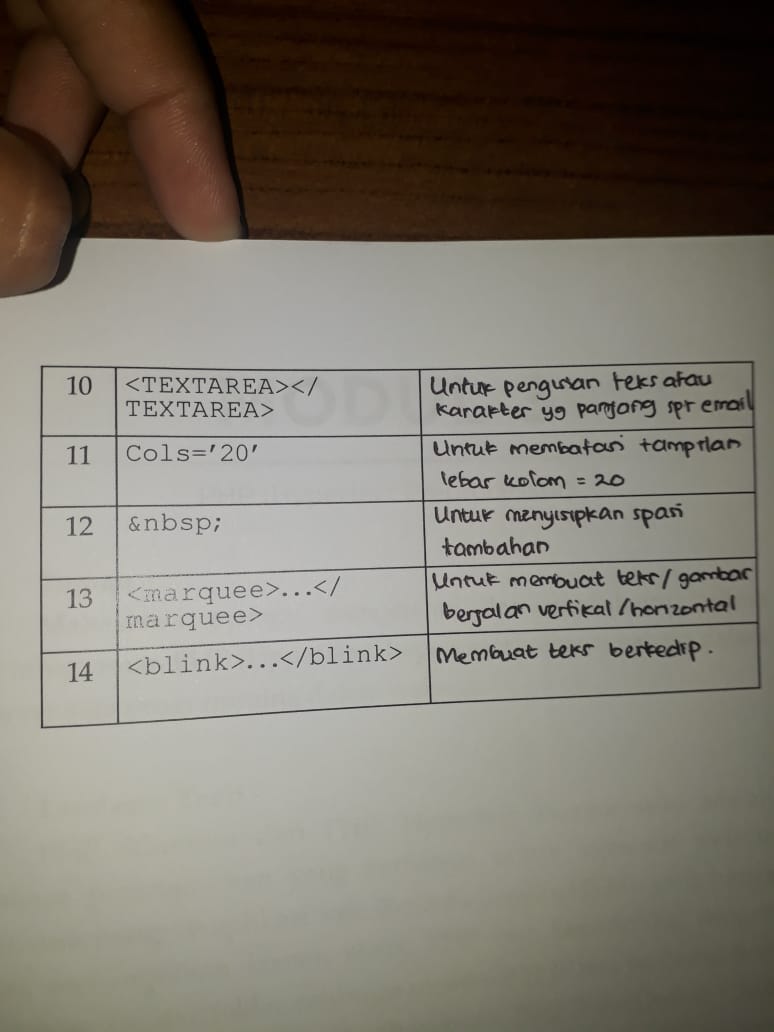 10 <TEXTAREA></ Untuk pengisian teks atau
TEXTAREA> karakter yg panjang spr email
11 Cols='20' Untuk membatasi tampilan
lebar kolom = 20
12 &nbsp; Untuk menyisipkan spasi
tambahan
13 <marquee>...</ Untuk membuat teks/gambar
marquee> berjalan vertikal/horizontal
14 <blink>...</blink> Membuat teks berkedip.